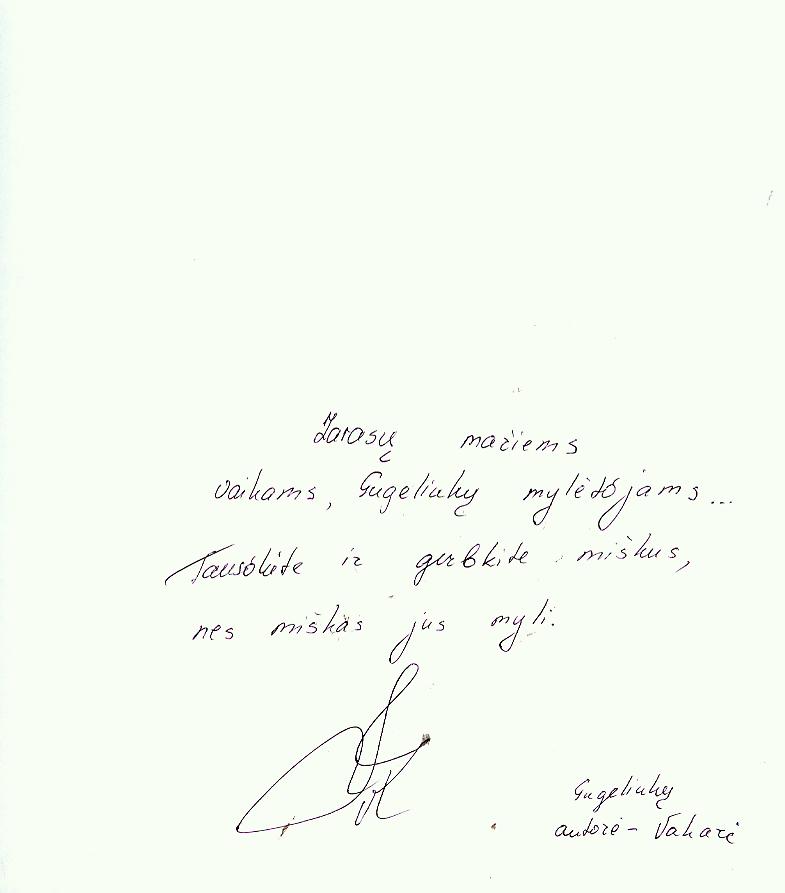 Zarasų mažiems
vaikams, Gugeliukų mylėtojams...
Tausokite ir gerbkite miškus,
nes miškas jus myli.
Gugeliukų
autorė - Vakarė